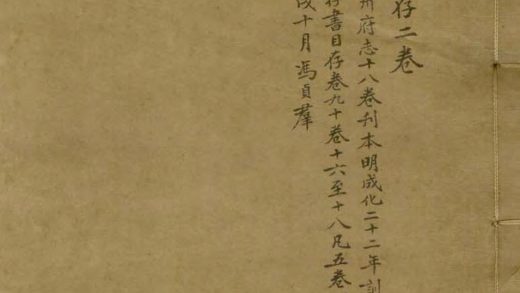 存二卷
州府志十八卷刊本明成化二十二年訓
存書目存卷九十卷十六至十八凡五卷
戌十月馮貞羣